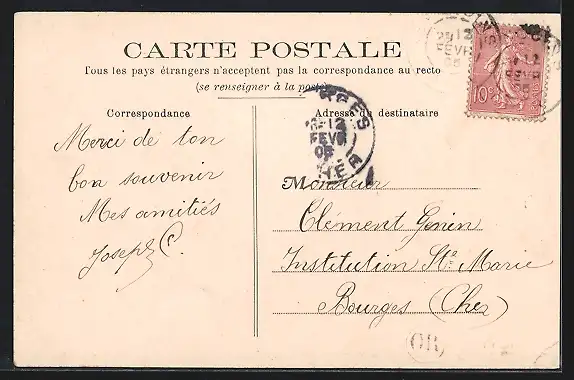 CARTE POSTALE
Tous les pays étrangers n'acceptent pas la correspondance au recto
(se renseigner à la poste)
Correspondance
Adresse du destinataire
Merci de ton
bon souvenir
Mes amitiés
Joseph C.
Monsieur
Clément Genin
Institution Ste Marie
Bourges (Cher)
10c
12
FEVR
05
CHER
(OR)